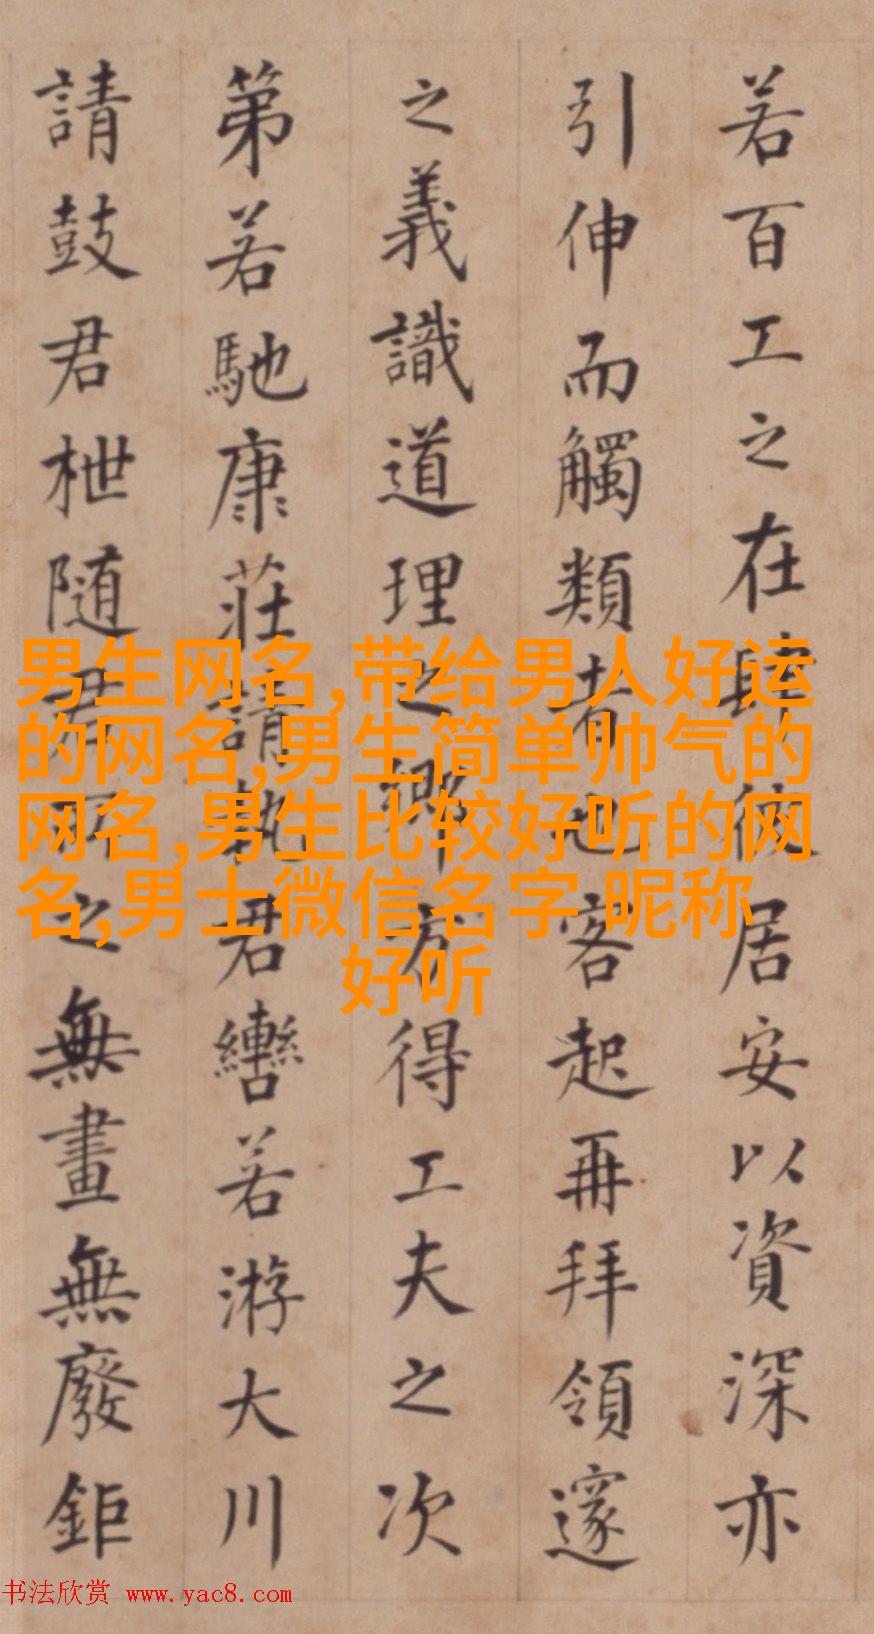 若百工之在肆居安以資深亦
引伸而觸類者也客起再拜領邃
之義識道理之鄉方得工夫之次
第若馳康莊請執君轡若游大川
請鼓君枻随君所之無畫無廢鉅
男生网名,带给男人好运
的网名,男生简单帅气的
网名,男生比较好听的网
名,男士微信名字 昵称
好听
书法欣赏 www.yac8.com